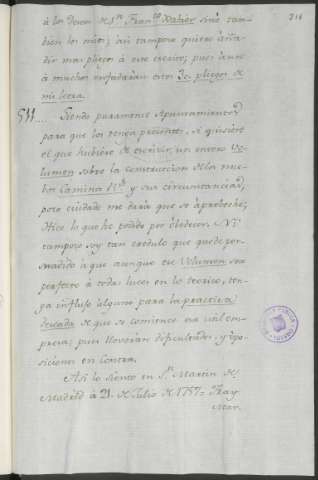 218
à los deseos de S.or Fran.co Xavier sinò tam-
bien los mios; ni tampoco quiero aña-
dir mas pliegos à este escrito, pues
à muchos enfadaràn estos 30. pliegos de
mi letra.
511.... Siendo puramente Apuntamientos
para que los tenga presentes, si quisiere
el que hubiere de escrivir, un entero Vo-
lumen sobre la construccion de los nue-
bos Caminos R.s y sus circunstancias,
poco cuidado me daria que se aprobeche;
Hice lo que he podido por obedecer. Ni
tampoco soy tan credulo que quede per-
suadido à que aunque tal Volumen sea
perfecto à todas luces en lo teorico, ten-
ga influjo alguno para la practica
deseada de que se comience tan util em-
presa; pues lloveràn dificultades, y opo-
siciones en contra.
Asi lo siento en S.n Martin de
Madrid à 21 de Julio de 1757= Fray
Mar.